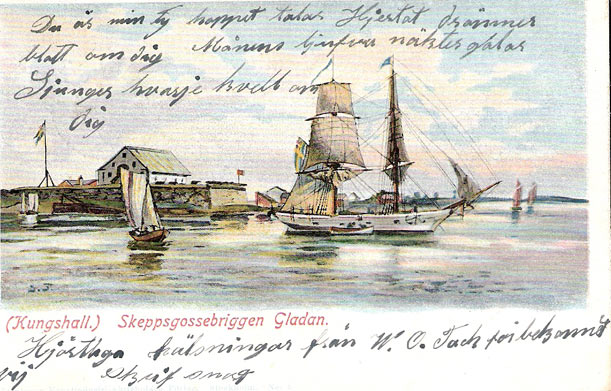 Du äs min ty hoppet talar Hjertat drömmer
blott om dig Månens ljufva näktergalar
Sjunger hvarje kvell om
dig
(Kungshall.) Skeppsgossebriggen Gladan.
Hjärtliga hälsningar från W. O. Tack
skrif snart